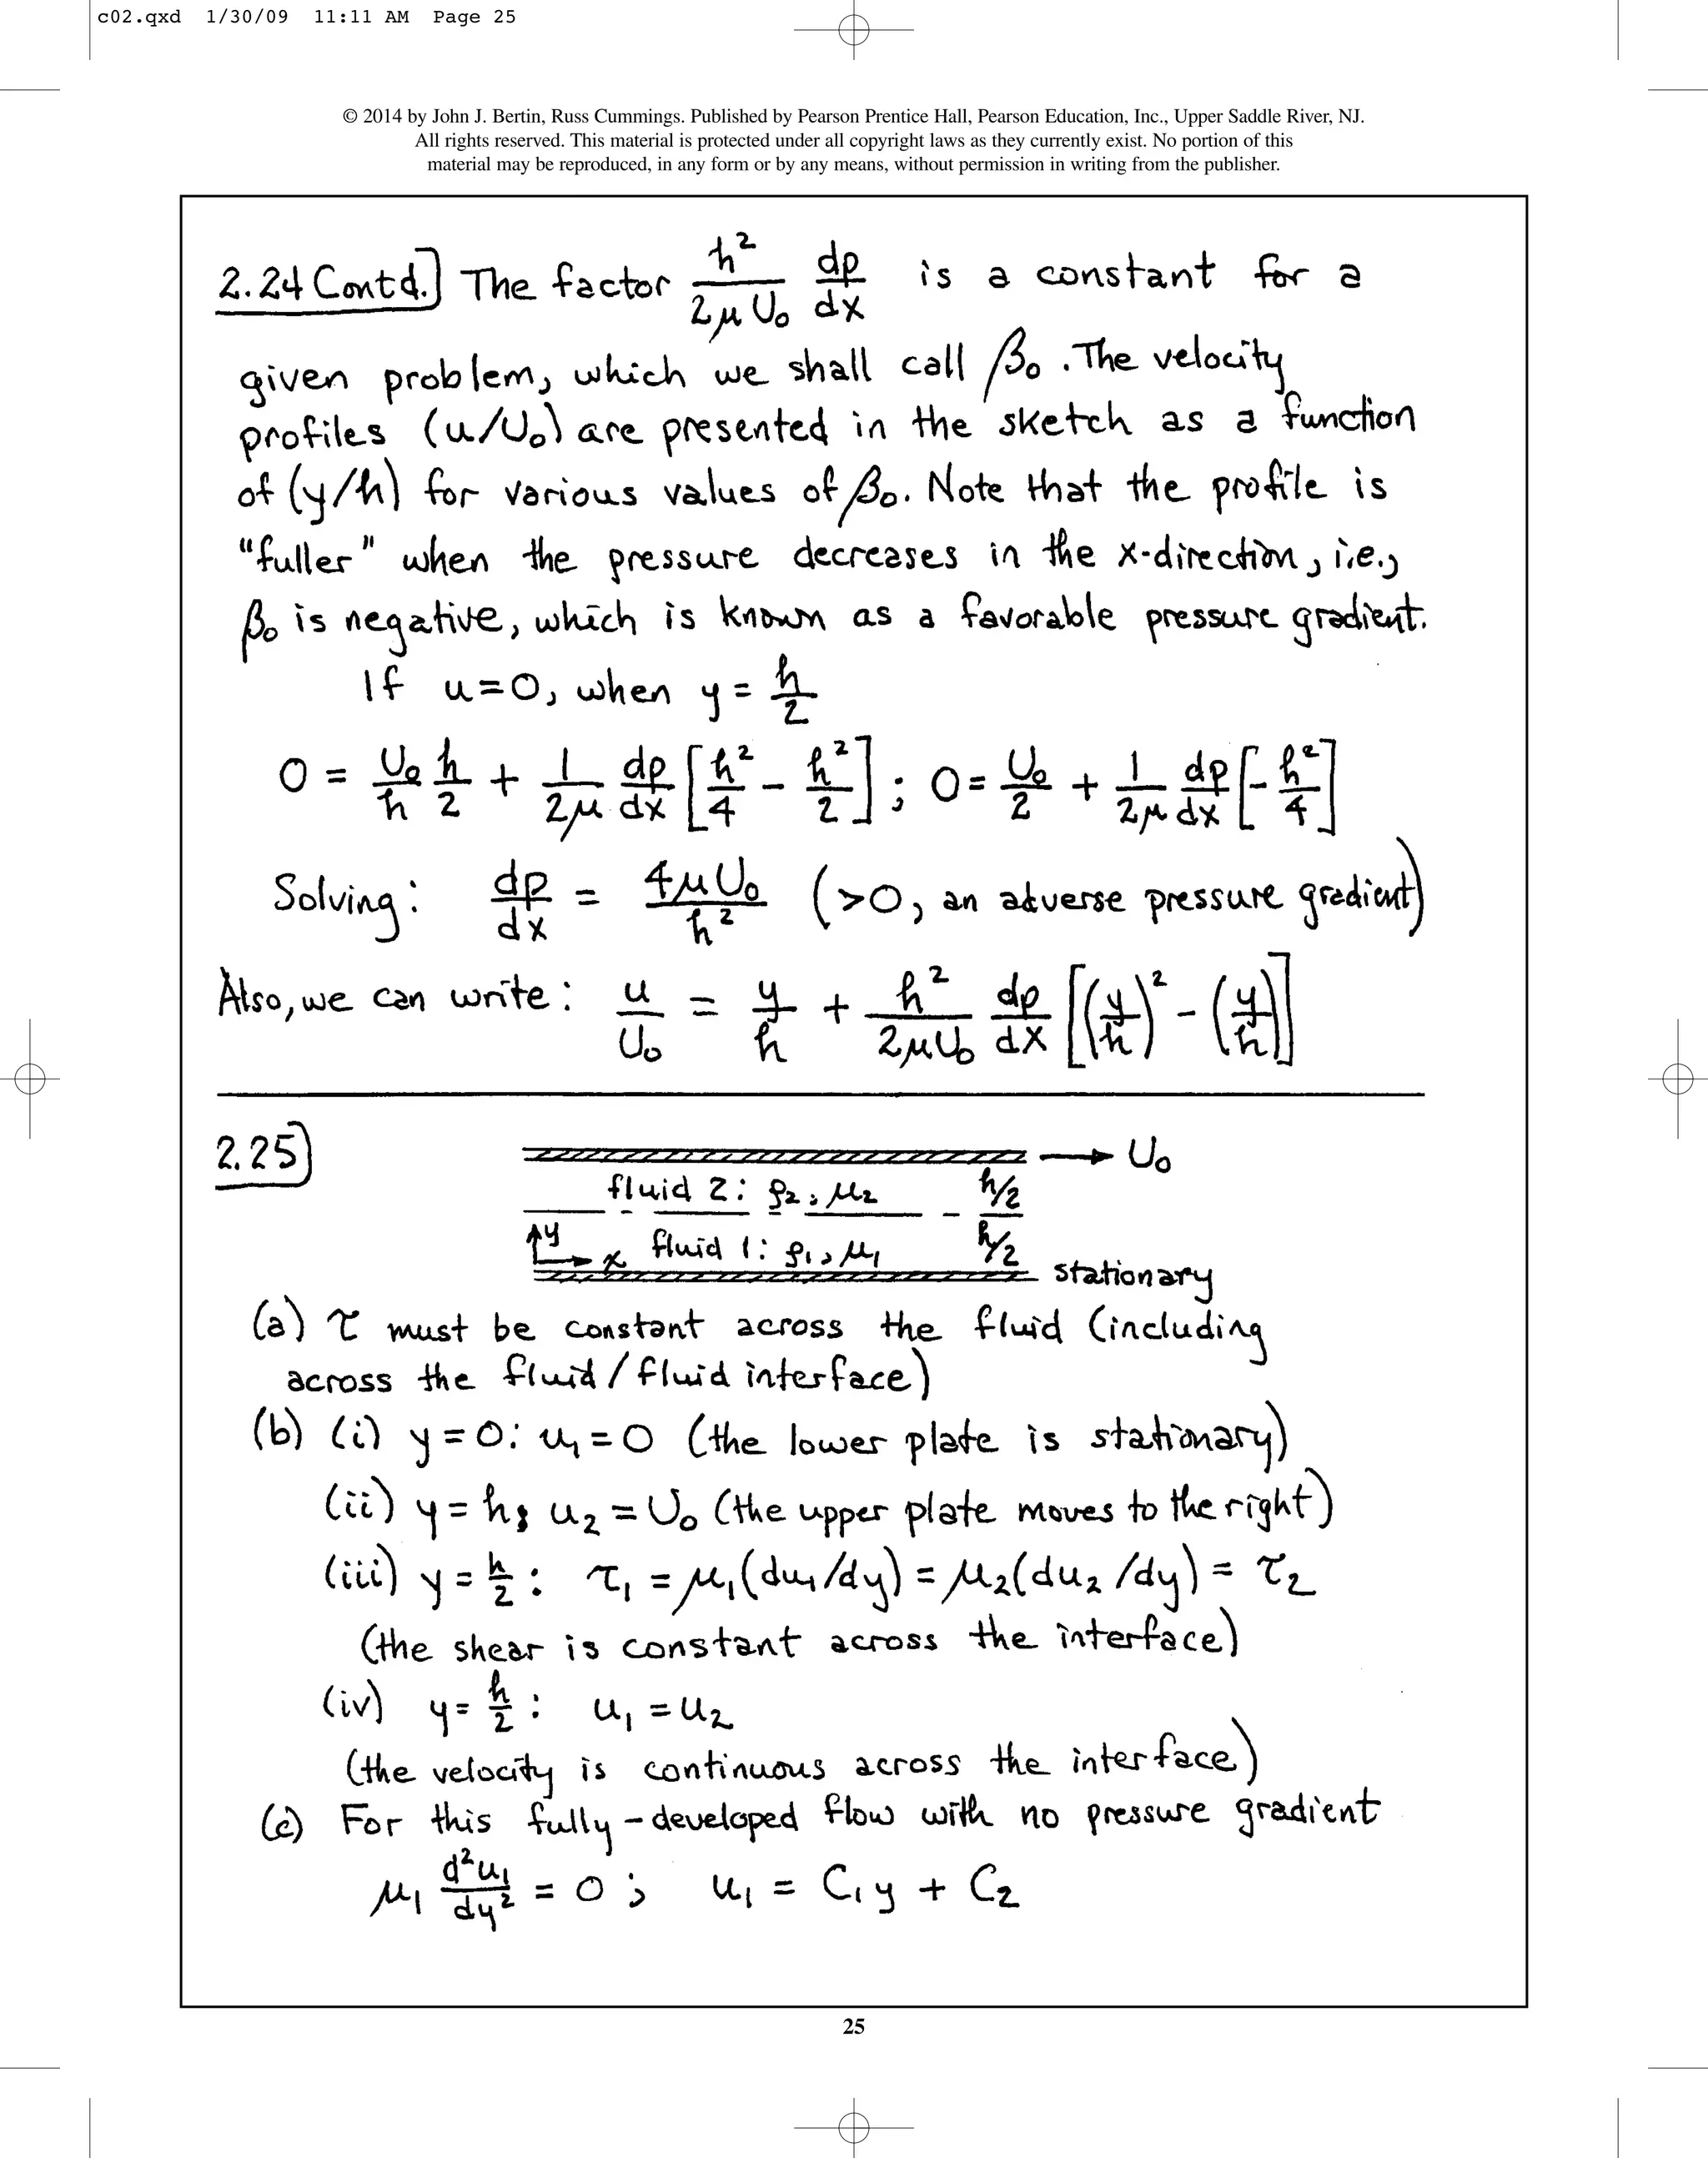 c02.qxd 1/30/09 11:11 AM Page 25
© 2014 by John J. Bertin, Russ Cummings. Published by Pearson Prentice Hall, Pearson Education, Inc., Upper Saddle River, NJ.
All rights reserved. This material is protected under all copyright laws as they currently exist. No portion of this
material may be reproduced, in any form or by any means, without permission in writing from the publisher.
2.24 Contd.] The factor h²/(2μU₀) dp/dx is a constant for a
given problem, which we shall call β₀. The velocity
profiles (u/U₀) are presented in the sketch as a function
of (y/h) for various values of β₀. Note that the profile is
"fuller" when the pressure decreases in the x-direction, i.e.,
β₀ is negative, which is known as a favorable pressure gradient.
If u=0, when y = h/2
0 = U₀/h h/2 + 1/(2μ) dp/dx [h²/4 - h²/2]; 0 = U₀/2 + 1/(2μ) dp/dx [-h²/4]
Solving: dp/dx = 4μU₀/h² (>0, an adverse pressure gradient)
Also, we can write: u/U₀ = y/h + h²/(2μU₀) dp/dx [(y/h)² - (y/h)]
2.25]
→ U₀
fluid 2: ρ₂, μ₂ h/2
y x fluid 1: ρ₁, μ₁ h/2
stationary
(a) τ must be constant across the fluid (including
across the fluid/fluid interface)
(b) (i) y=0: u₁=0 (the lower plate is stationary)
(ii) y=h; u₂=U₀ (the upper plate moves to the right)
(iii) y = h/2: τ₁ = μ₁(du₁/dy) = μ₂(du₂/dy) = τ₂
(the shear is constant across the interface)
(iv) y = h/2: u₁ = u₂
(the velocity is continuous across the interface)
(c) For this fully-developed flow with no pressure gradient
μ₁ d²u₁/dy² = 0; u₁ = C₁y + C₂
25